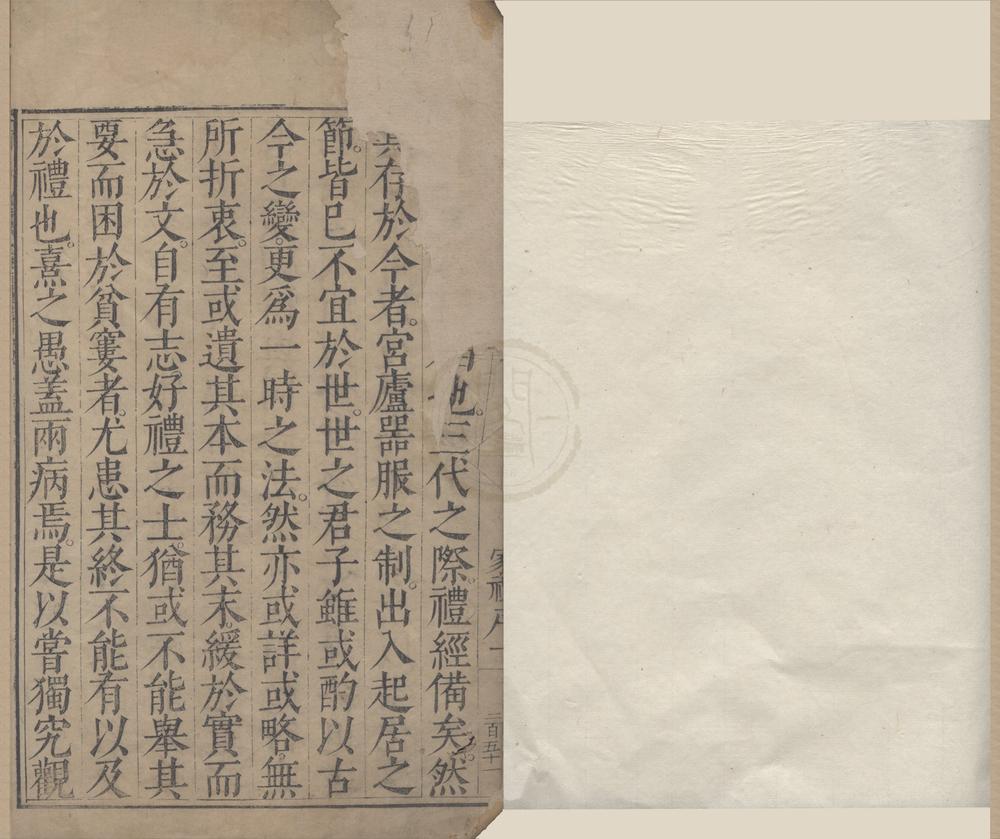 也。三代之際。禮經備矣。然
其存於今者。宮廬器服之制。出入起居之
節。皆已不宜於世。世之君子。雖或酌以古
今之變。更爲一時之法。然亦或詳或略。無
所折衷。至或遺其本而務其末。緩於實而
急於文。自有志好禮之士。猶或不能舉其
要。而困於貧窶者。尤患其終不能有以及
於禮也。熹之愚。蓋兩病焉。是以嘗獨究觀